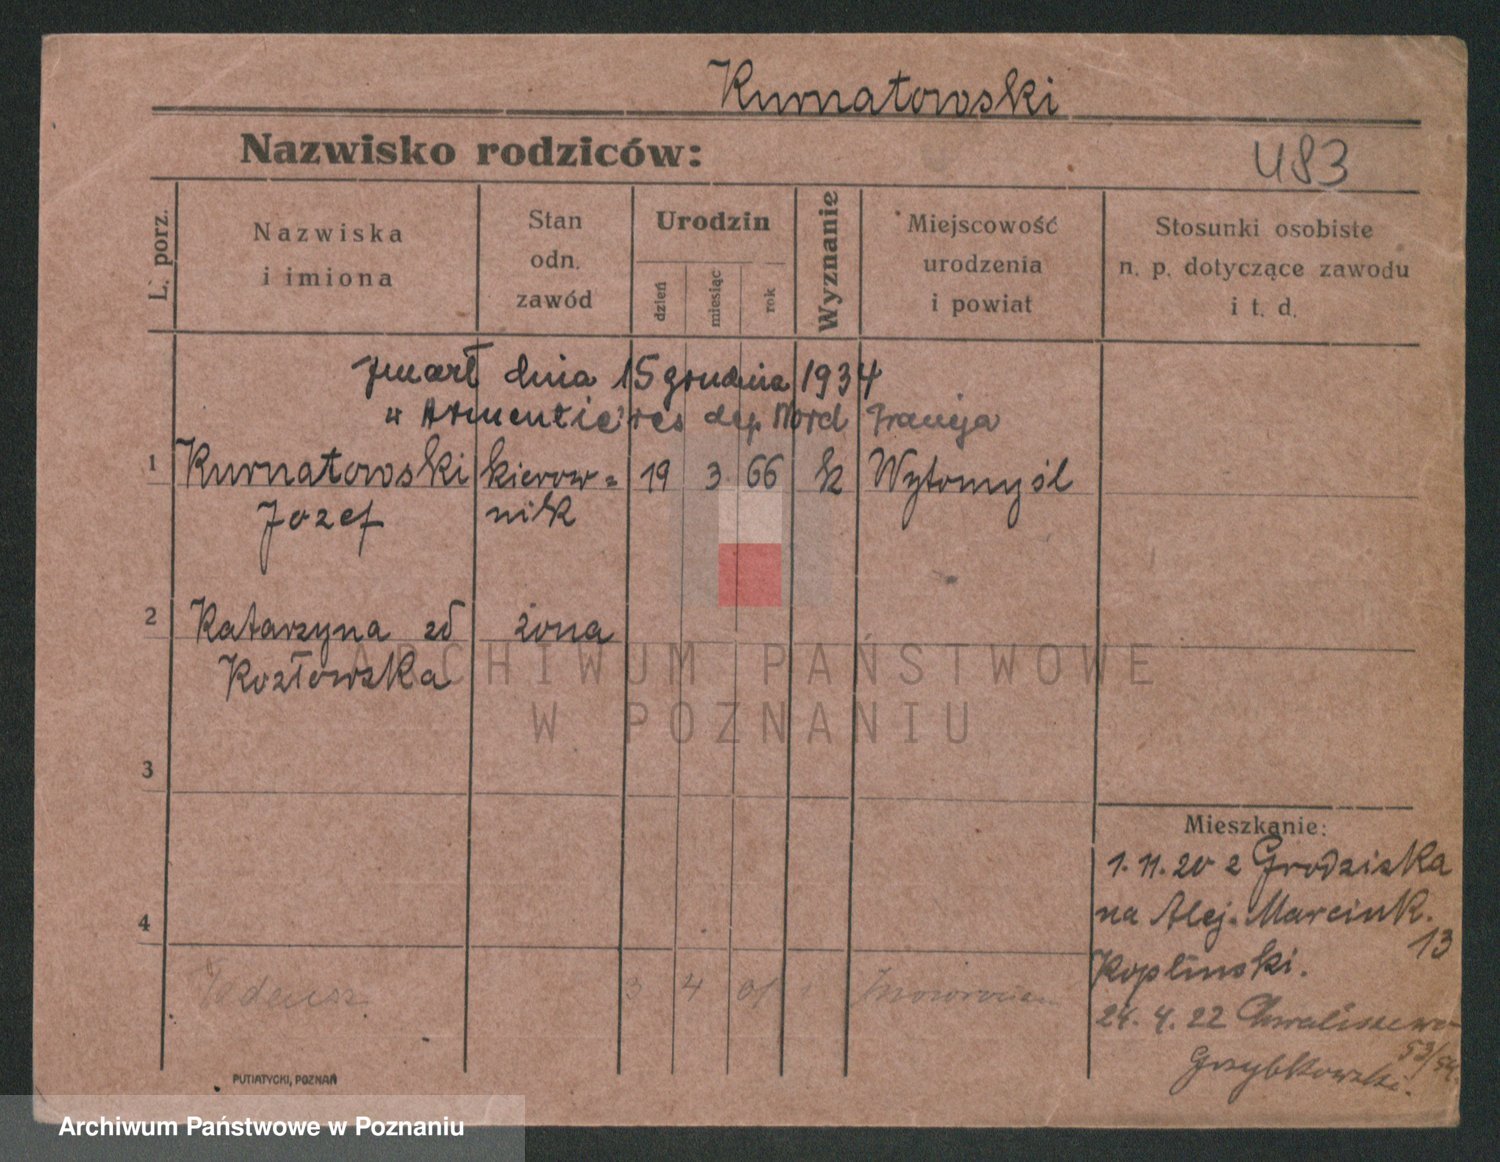 Kurnatowski
Nazwisko rodziców:
483
L. porz.
Nazwiska
i imiona
Stan
odn.
zawód
Urodzin
dzień
miesiąc
rok
Wyznanie
Miejscowość
urodzenia
i powiat
Stosunki osobiste
n. p. dotyczące zawodu
i t. d.
zmarł dnia 15 grudnia 1934
w Armentières dep Nord Francja
1 Kurnatowski kierow= 19 3 66 k Wytomyśl
Józef nik
2 Katarzyna zd żona
Kozłowska
ARCHIWUM PAŃSTWOWE
W POZNANIU
3
Mieszkanie:
1.11.20 z Grodziska
na Alej. Marcink.
13
4
Koplinski.
Tadeusz 3 4 01
24.4.22 Chwaliszewo
53/54
Grzybkowska.
PUTIATYCKI, POZNAŃ
Archiwum Państwowe w Poznaniu